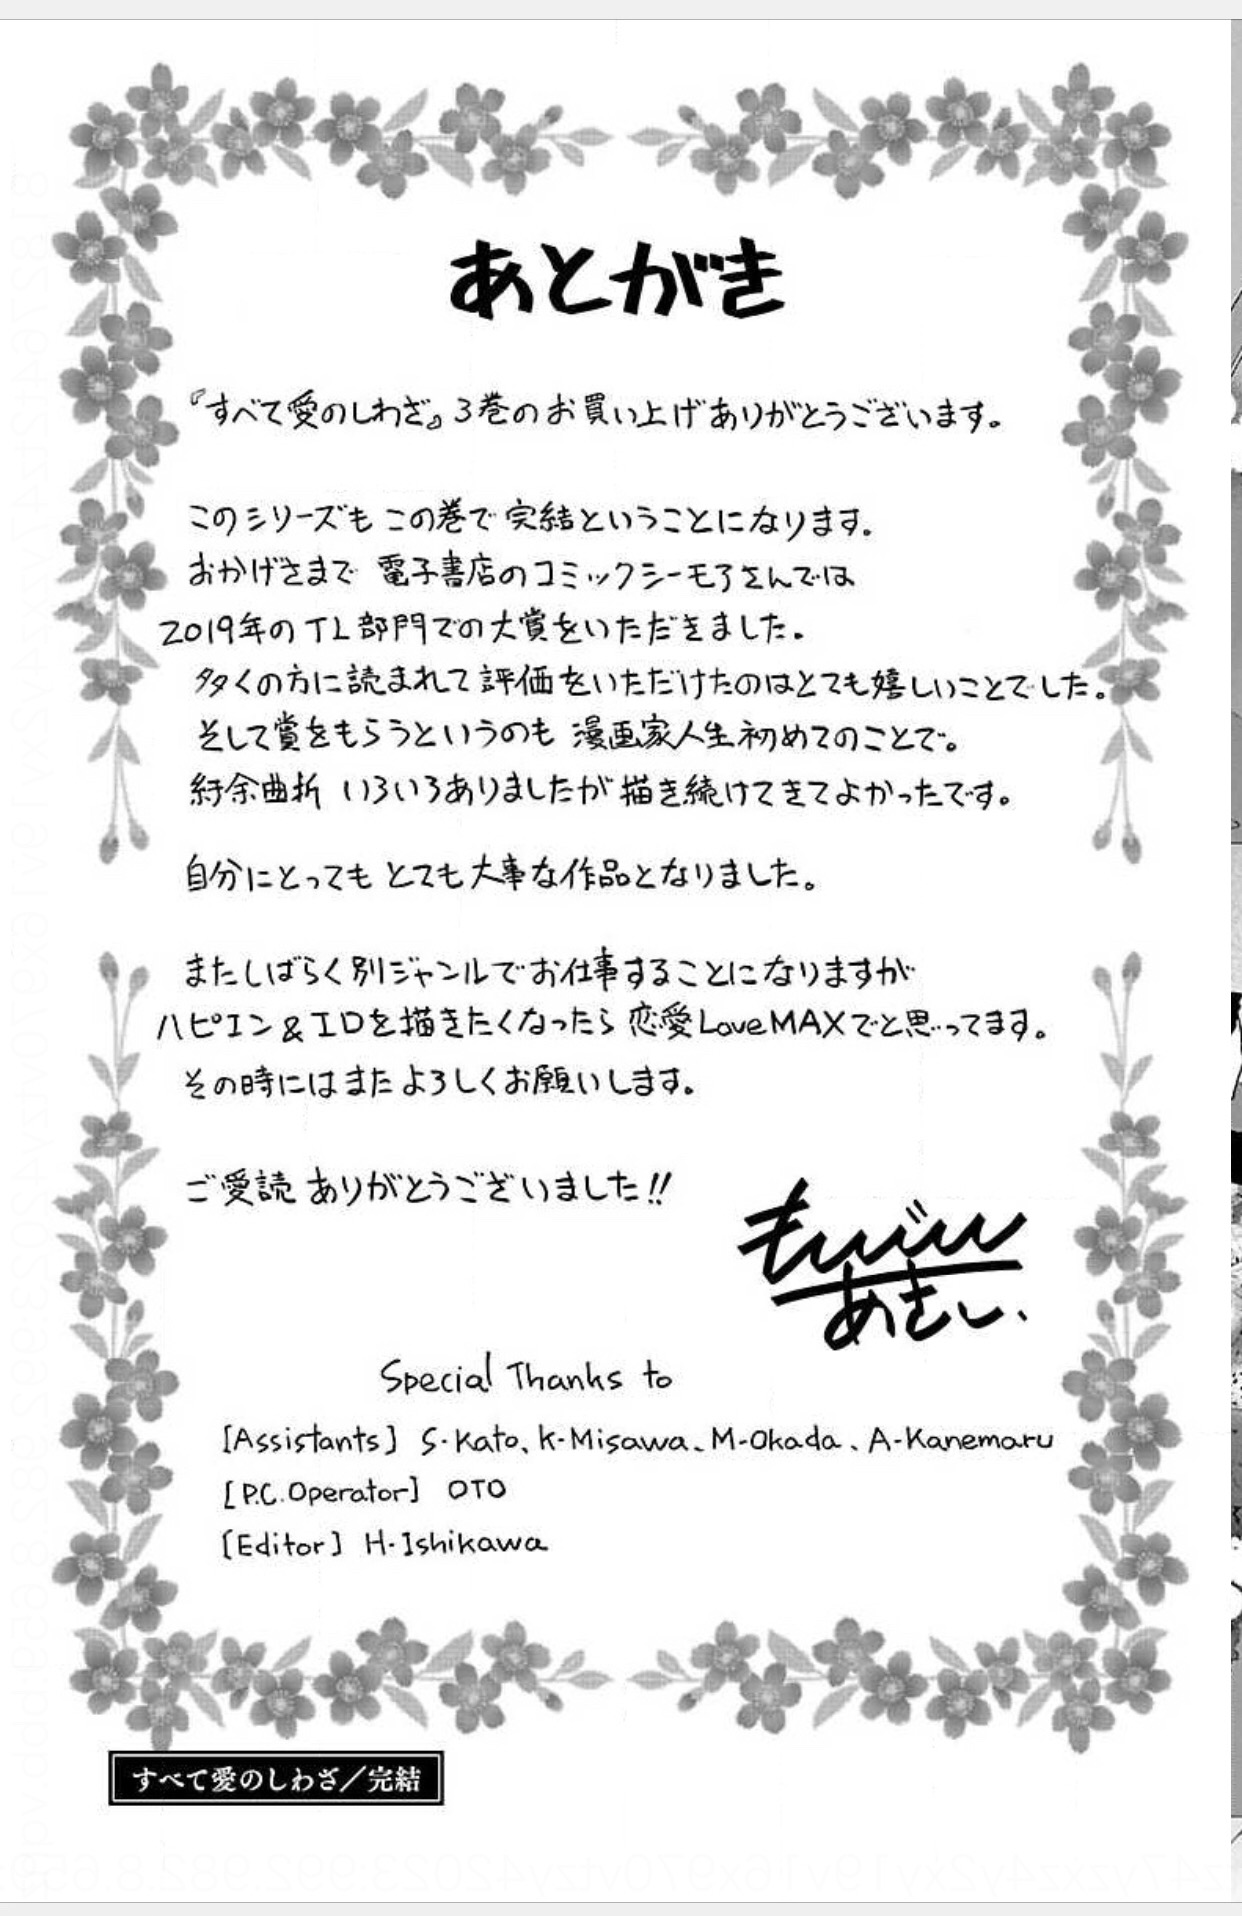 あとがき
『すべて愛のしわざ』3巻のお買い上げありがとうございます。
このシリーズも この巻で 完結ということになります。
おかげさまで 電子書店のコミックシーモアさんでは
2019年のTL部門での大賞をいただきました。
多くの方に読まれて評価をいただけたのはとても嬉しいことでした。
そして賞をもらうというのも 漫画家人生初めてのことで。
紆余曲折 いろいろありましたが描き続けてきてよかったです。
自分にとっても とても大事な作品となりました。
またしばらく別ジャンルでお仕事することになりますが
ハピエン&エロを描きたくなったら 恋愛LoveMAXでと思ってます。
その時にはまたよろしくお願いします。
ご愛読 ありがとうございました!!
Special Thanks to
[Assistants] S・Kato、K-Misawa、M-Okada、A-Kanemaru
[P.C.Operator] OTO
[Editor] H・Ishikawa
すべて愛のしわざ/完結